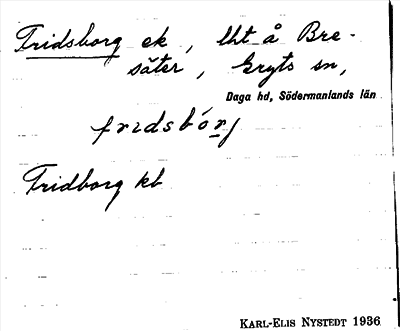 Fridsborg ek, lht å Bre-
säter, Gryts sn,
Daga hd, Södermanlands län
fridsbórj
Fridborg kb
KARL-ELIS NYSTEDT 1936